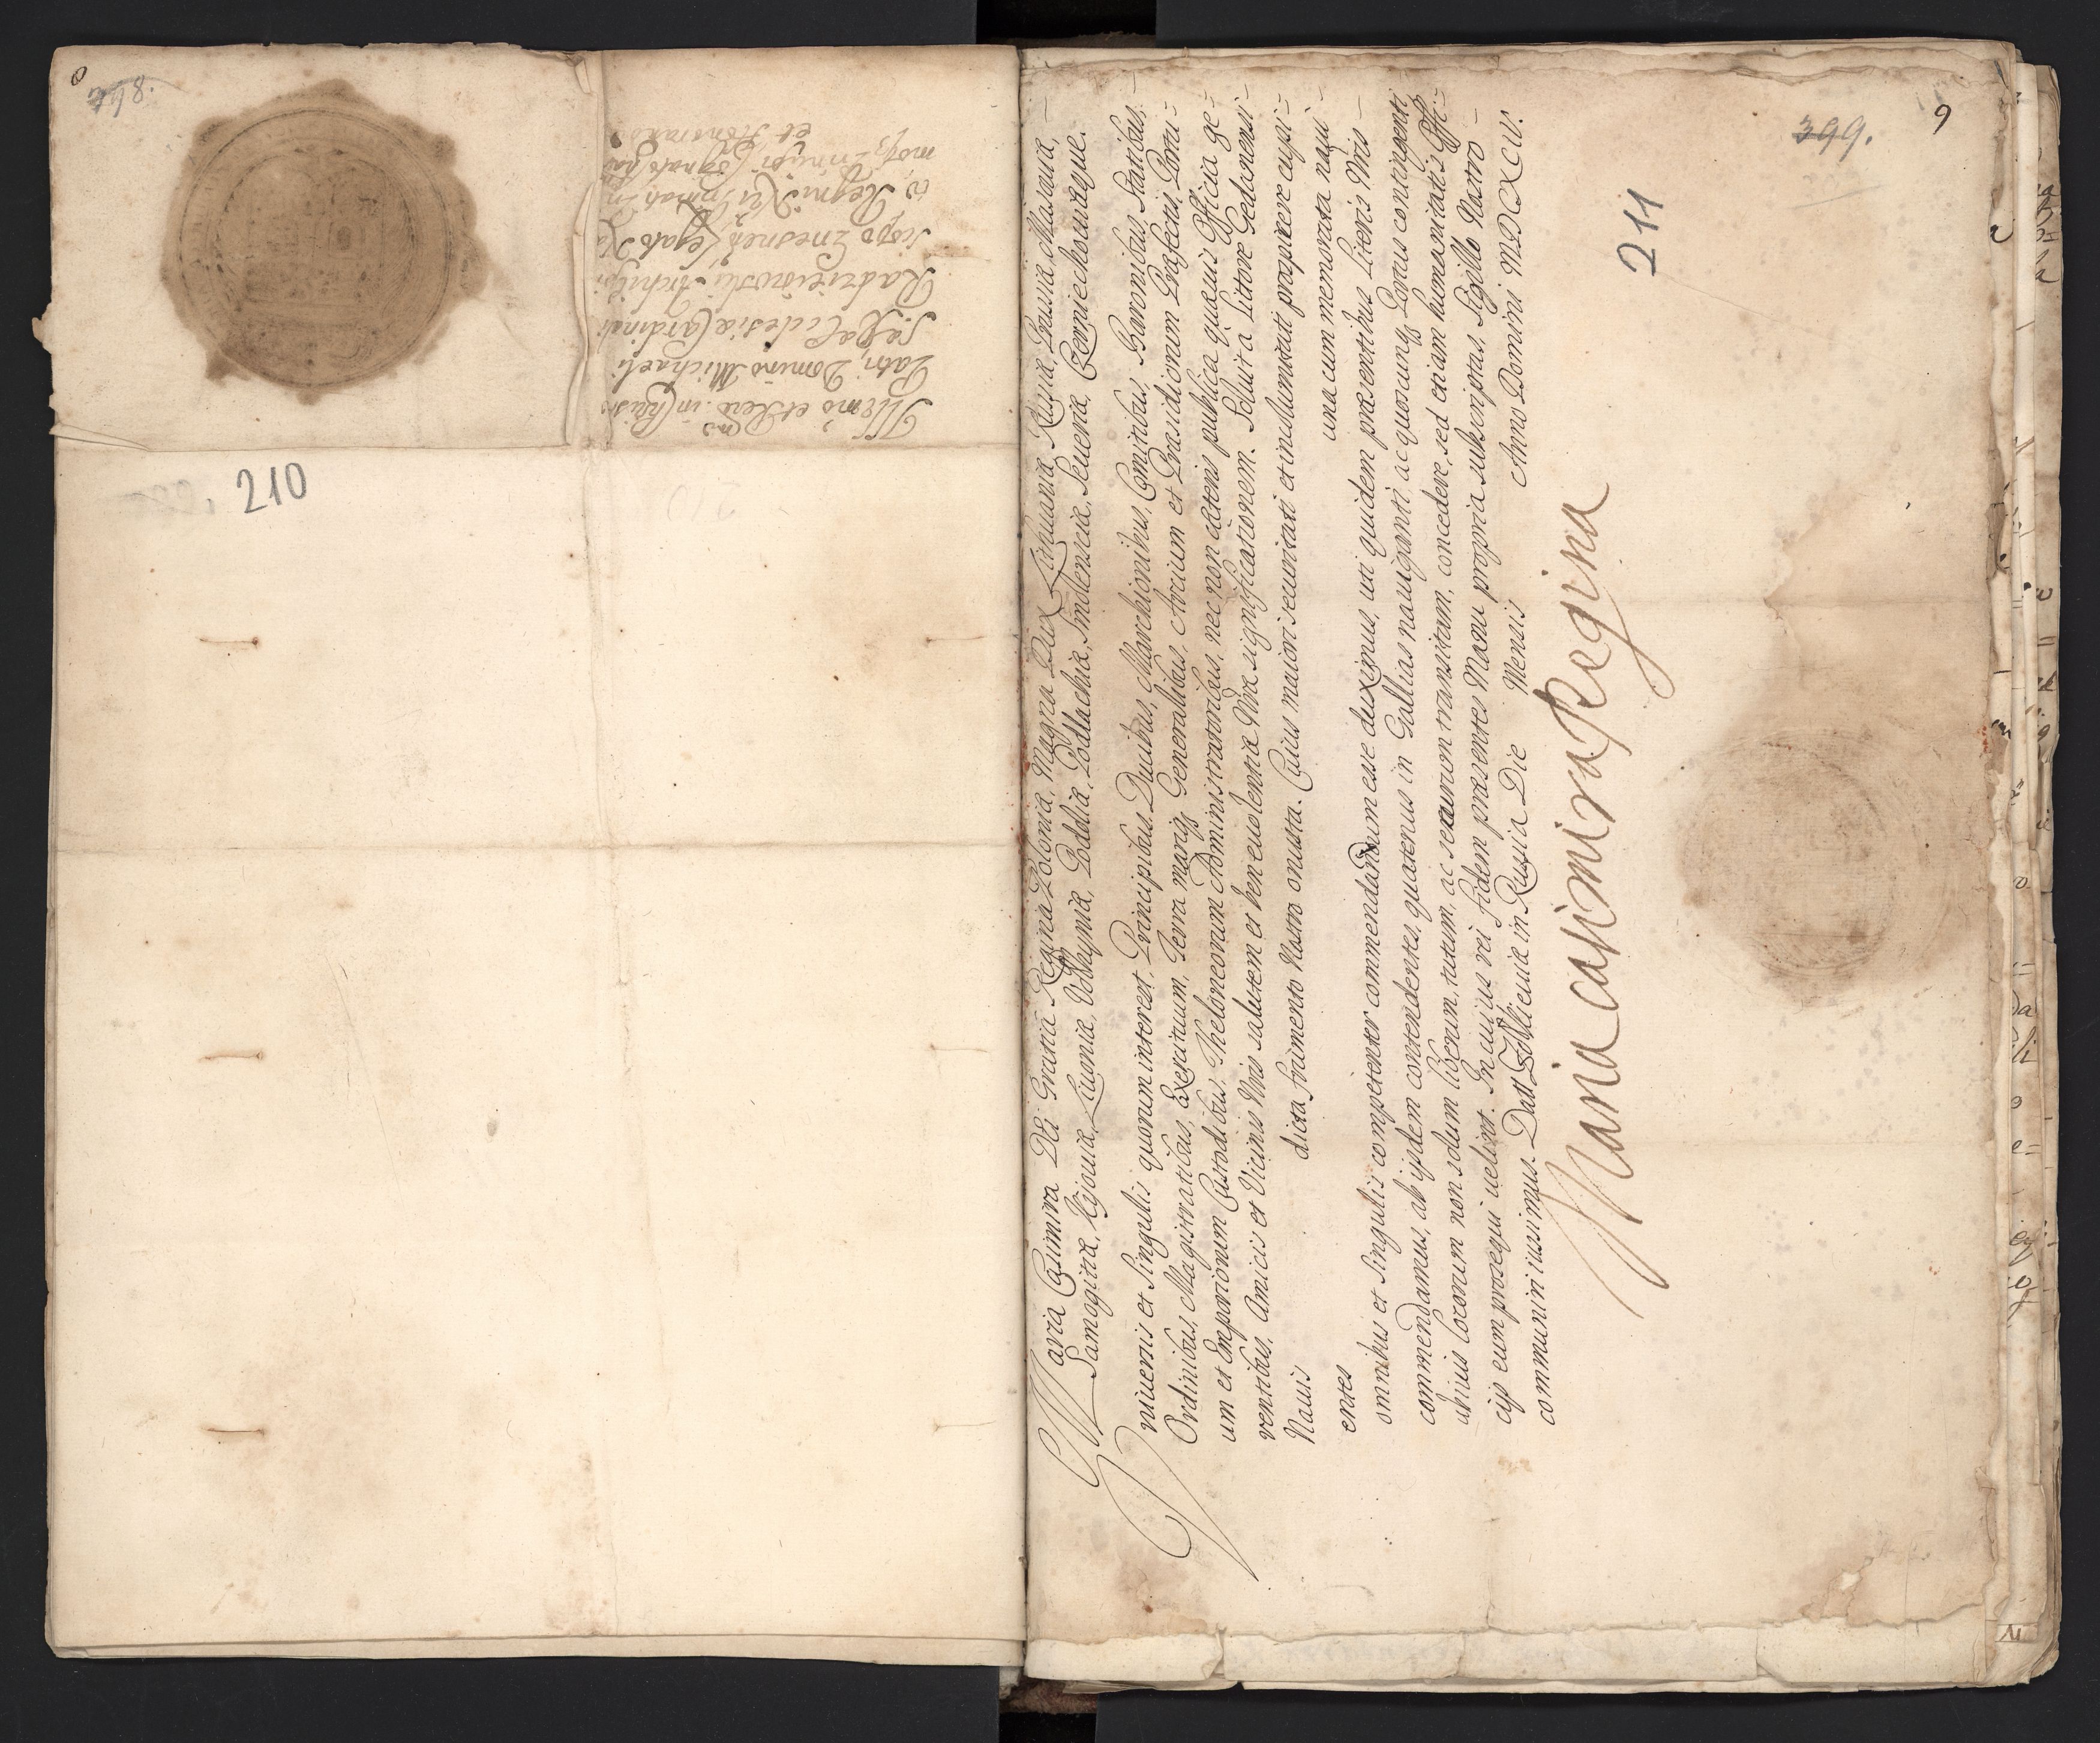 398.
Illmo et Rndo in Christo
Patri, Domino Michaeli
S. R. Ecclesiæ Cardinali
Radzieiowski Archiepi
scopo Gnesnen Legato
Regni Primati
et Honorando
210
399.
9
211
Maria Casimira Dei Gratia Regina Poloniæ, Magna Dux Lithuaniæ, Russiæ, Prussiæ, Masouiæ,
Samogitiæ, Kijouiæ, Liuoniæ, Volhyniæ, Podoliæ, Podlachiæ, Smolensciæ, Seueriæ, Czerniechouiæque.
Vniuersis et Singulis quorum interest, Principibus, Ducibus, Marchionibus, Comitibus, Baronibus, Statibus,
Ordinibus, Magistratibus, Exercituum, Terra mariq Generalibus, Arcium et Præsidiorum Præfectis, Portu=
um et Emporiorum Custodibus, Theloneorum Administratoribus, nec non cæteris publica quæuis Officia ge=
rentibus, Amicis et Vicinis Nris salutem et beneuolentiæ Nræ significationem. Soluit a Littore Gedanensi
Nauis dicta frumento Nostro onusta. Cuius maiori securitati et indemnitati prospicere cupi=
entes una cum memorata naui
omnibus et singulis competenter commendandum esse duximus, uti quidem præsentibus Literis Nris
commendamus, ab ijsdem contendentes, quatenus in Gallias nauiganti ac quorcunq Portus contingenti
ubiuis locorum non solum liberum, tutum, ac securum transitum, concedere, sed etiam humanitatis Offi=
cijs eum prosequi uelint. In cuius rei fidem præsentes Manu propria subscriptas, Sigillo Nostro
communiri iussimus. Datt Zolkieuiæ in Russia Die Mensis Anno Domini MDCXCIV.
Maria Casimira Regina